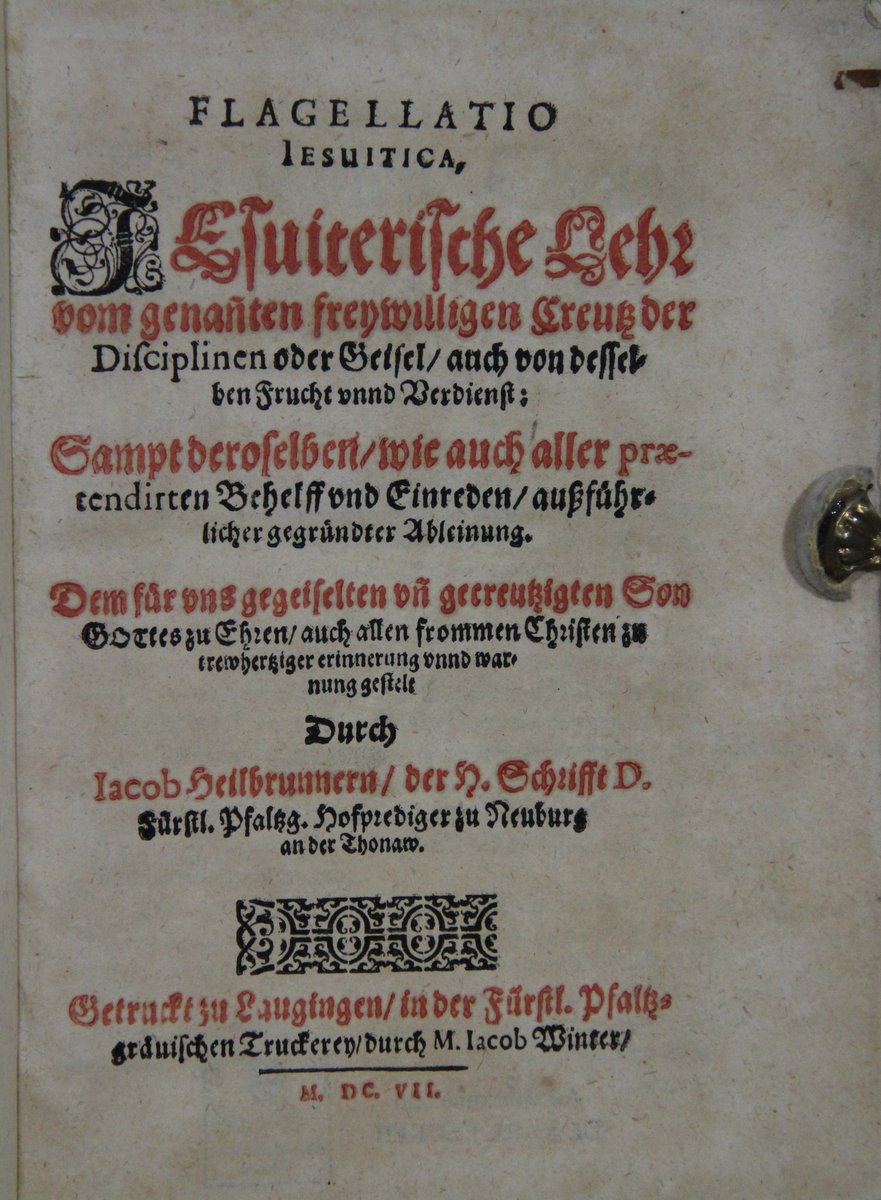 FLAGELLATIO
IESUITICA,
JEsuiterische Lehr
vom genañten freywilligen Creutz der
Disciplinen oder Geisel/ auch von dessel-
ben Frucht vnnd Verdienst:
Sampt deroselben/ wie auch aller præ-
tendirten Behelff vnd Einreden/ außführ-
licher gegründter Ableinung.
Dem für vns gegeiselten vñ gecreutzigten Son
GOttes zu Ehren/ auch allen frommen Christen zu
trewhertziger erinnerung vnnd war-
nung gestelt
Durch
Iacob Heilbrunnern/ der H. Schrifft D.
Fürstl. Pfaltzg. Hofprediger zu Neuburg
an der Thonaw.
Getruckt zu Laugingen/ in der Fürstl. Pfaltz-
gräuischen Truckerey/ durch M. Iacob Winter/
M. DC. VII.